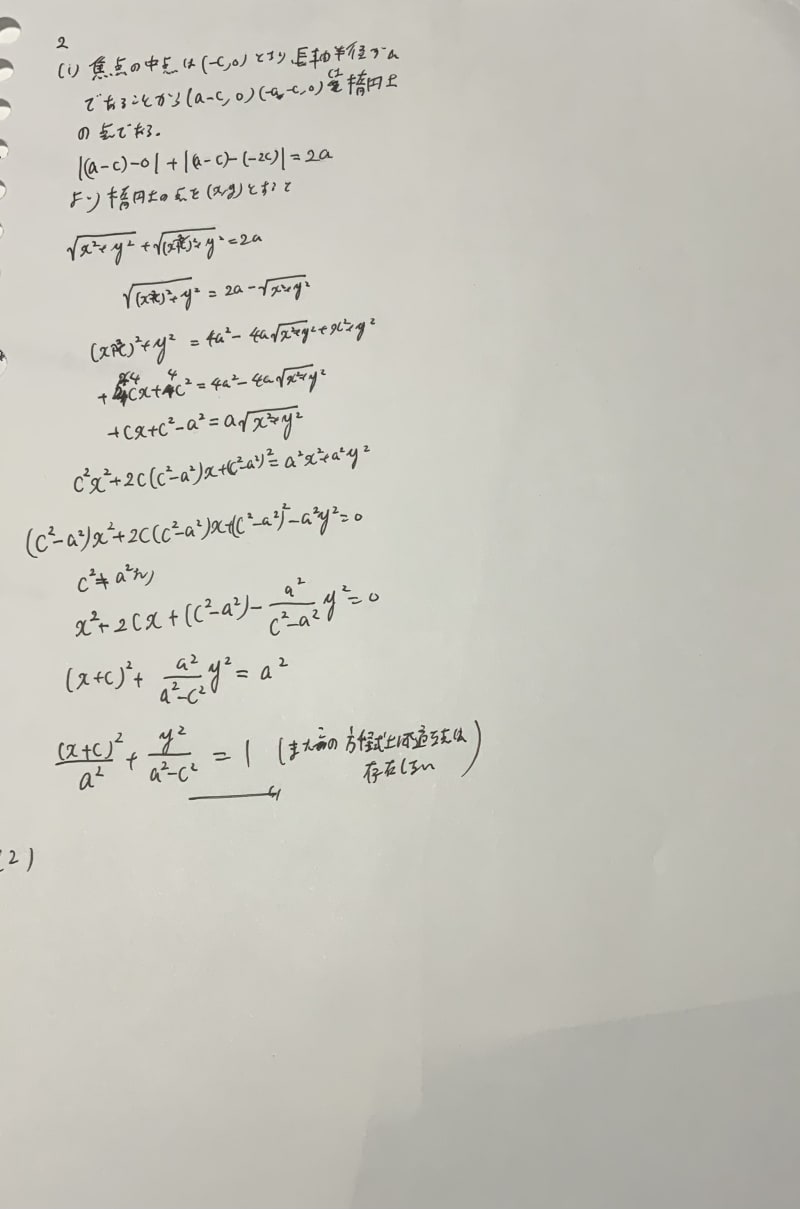 2
(1) 焦点の中点は(-c,0)となり長軸半径がa
であることから(a-c,0)(-a-c,0)は楕円上
の点である.
|(a-c)-0|+|(a-c)-(-2c)|=2a
より楕円上の点を(x,y)とおくと
√(x²+y²)+√((x+2c)²+y²)=2a
√((x+2c)²+y²)=2a-√(x²+y²)
(x+2c)²+y²=4a²-4a√(x²+y²)+x²+y²
+4cx+4c²=4a²-4a√(x²+y²)
+cx+c²-a²=a√(x²+y²)
c²x²+2c(c²-a²)x+(c²-a²)²=a²x²+a²y²
(c²-a²)x²+2c(c²-a²)x+(c²-a²)²-a²y²=0
c²≠a²より
x²+2cx+(c²-a²)-a²/(c²-a²) y²=0
(x+c)²+a²/(a²-c²) y²=a²
(x+c)²/a²+y²/(a²-c²)=1 (また の方程式上不適な点は
存在しない)
(2)